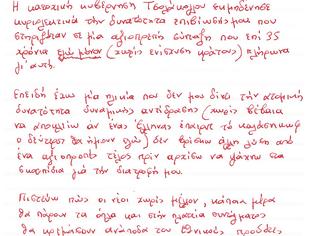 Η κατοχική κυβέρνηση Τσολάκογλου εκμηδένησε
κυριολεκτικά την δυνατότητα επιβίωσής μου που
στηριζόταν σε μία αξιοπρεπή σύνταξη που επί 35
χρόνια εγώ μόνον (χωρίς ενίσχυση κράτους) πλήρωνα
γι' αυτή.
Επειδή έχω μία ηλικία που δεν μου δίνει την ατομική
δυνατότητα δυναμικής αντίδρασης (χωρίς βέβαια
να αποκλείω αν ένας Έλληνας έπαιρνε το καλάσνικωφ
ο δεύτερος θα ήμουν εγώ) δεν βρίσκω άλλη λύση από
ένα αξιοπρεπές τέλος πριν αρχίσω να ψάχνω στα
σκουπίδια για την διατροφή μου.
Πιστεύω πως οι νέοι χωρίς μέλλον, κάποια μέρα
θα πάρουν τα όπλα και στην πλατεία συντάγματος
θα κρεμάσουν ανάποδα τους εθνικούς προδότες